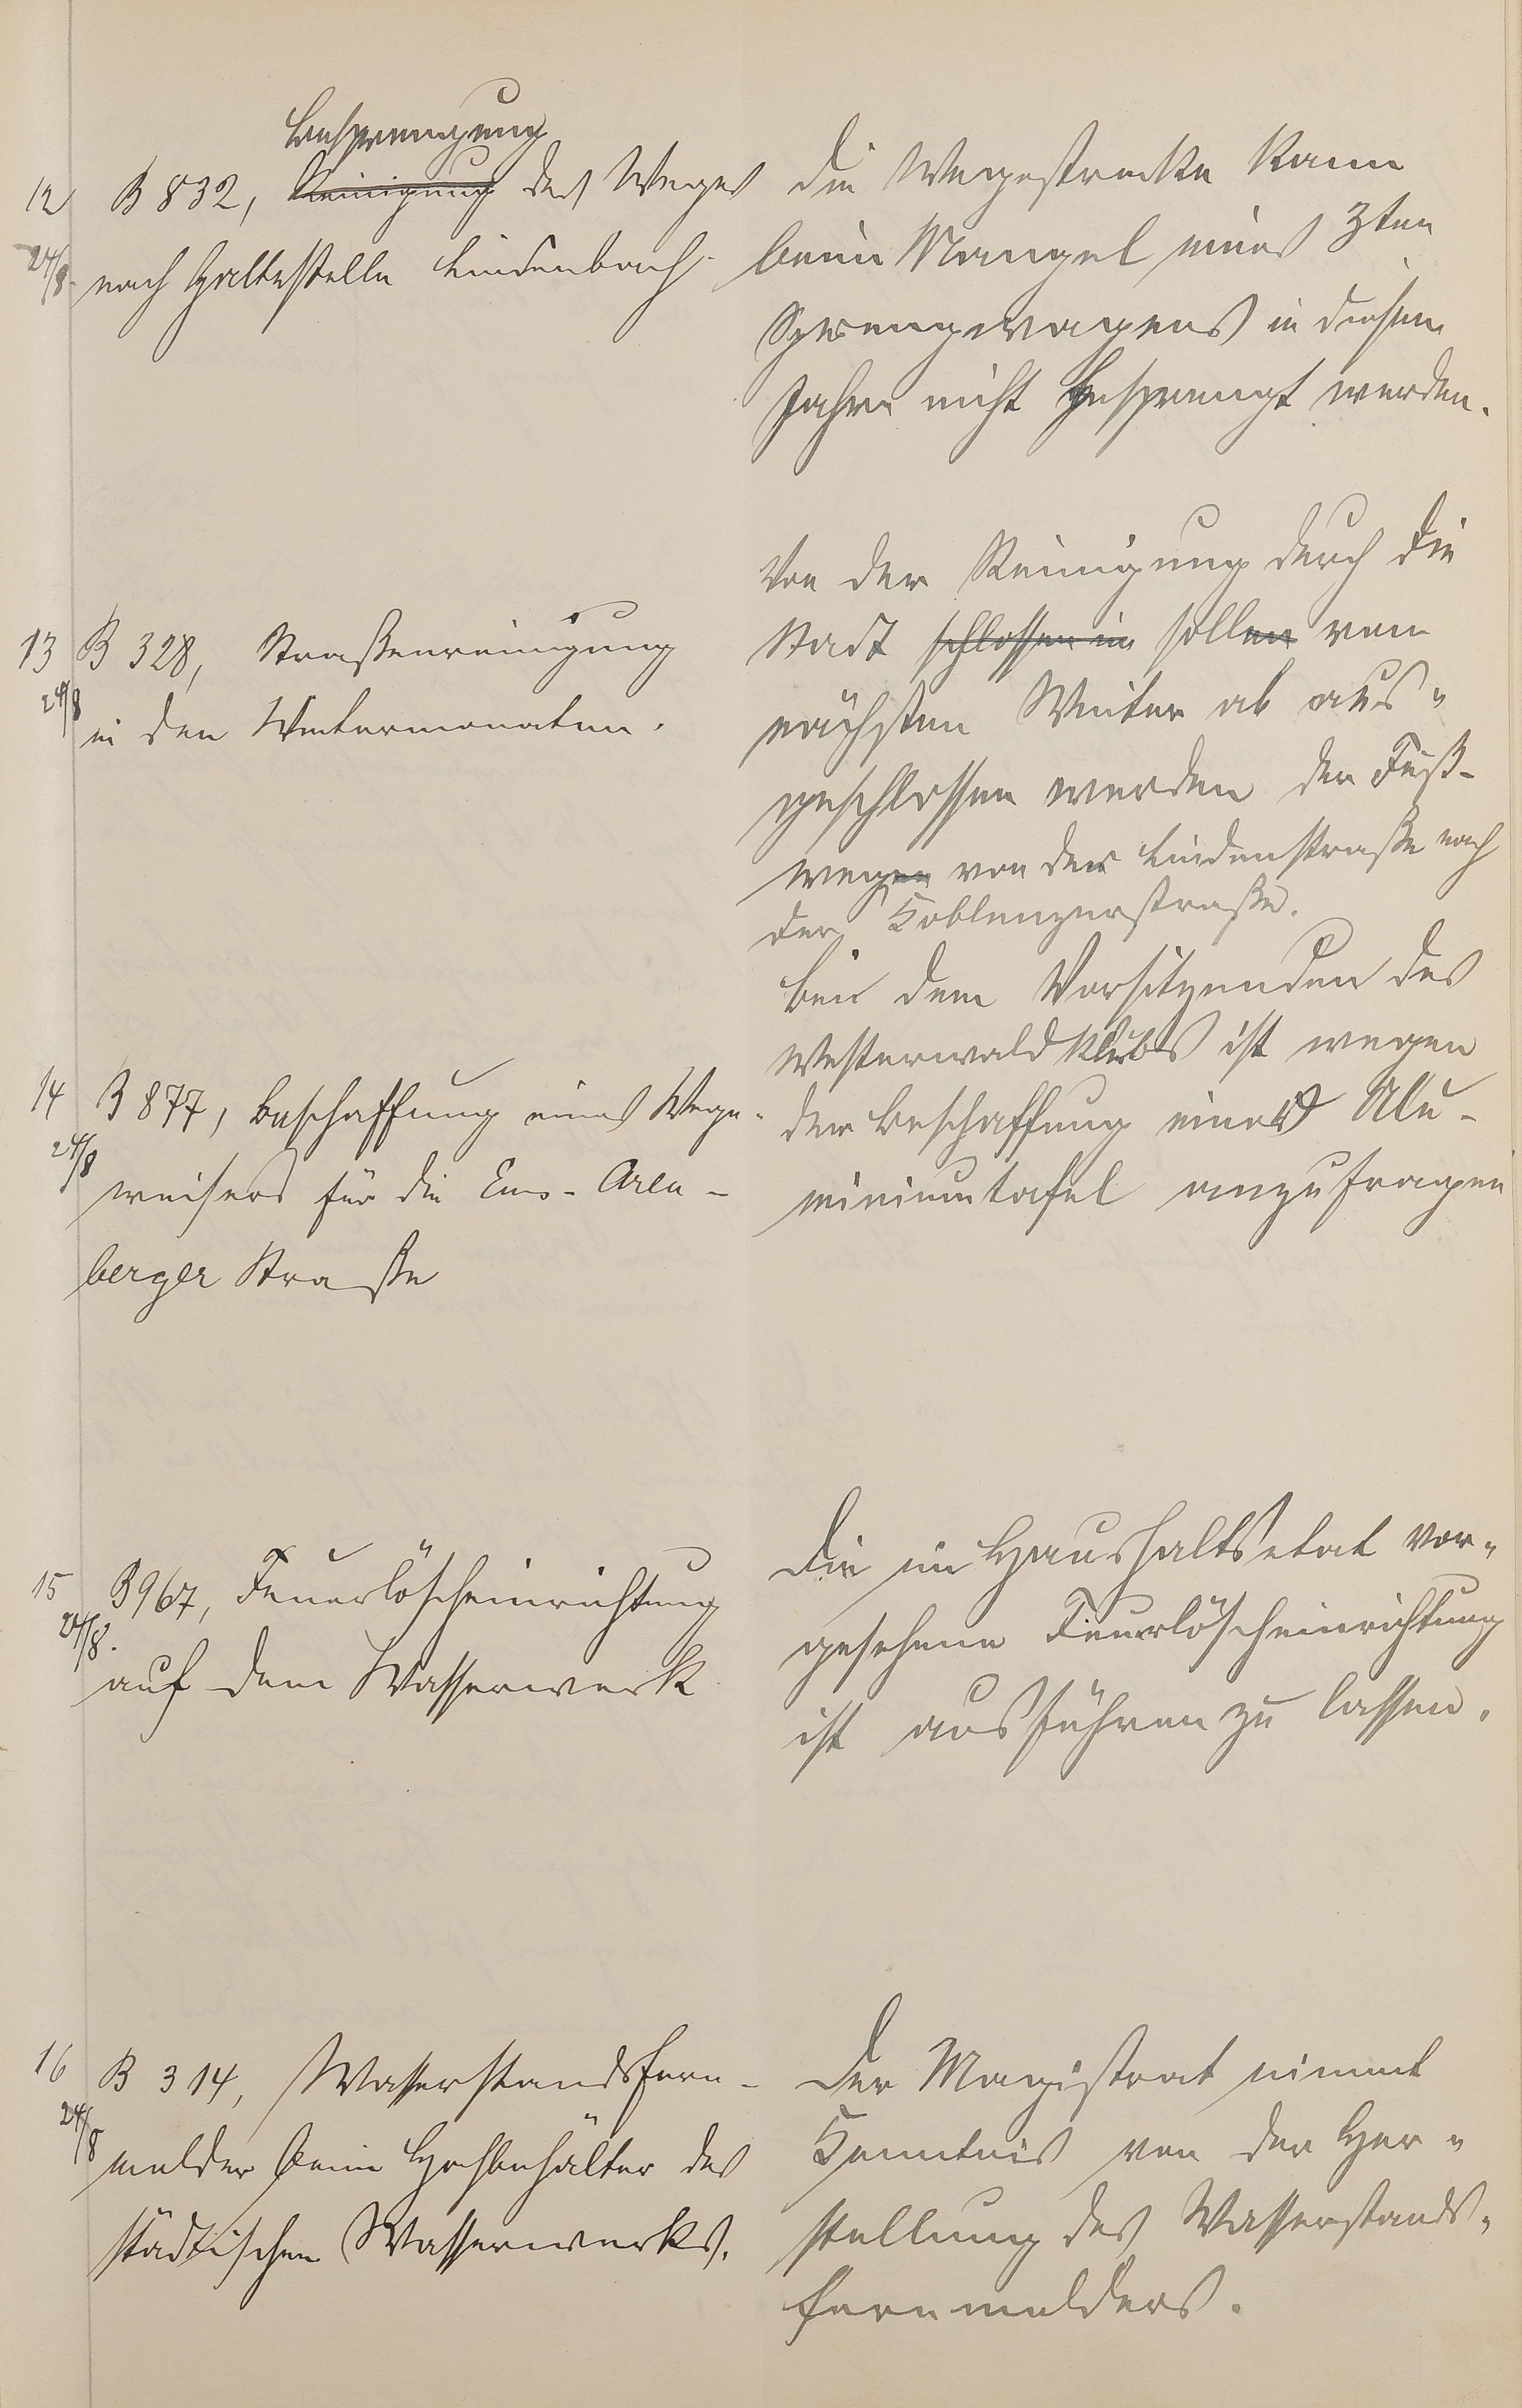 Besprengung
12 B 832, Reinigung des Weges
24/8. nach Haltestelle Lindenbach.
Die Wegestrecke kann
beim Mangel eines 3ten
Sprengwagens in diesem
Jahre nicht besprengt werden.
13 B 328, Straßenreinigung
24/8 in den Wintermonaten.
Von der Reinigung durch die
Stadt schlossen in sollen vom
nächsten Winter ab aus-
geschlossen werden der Fuß-
wegen von der Lindenstraße nach
der Koblenzerstraße.
14 B 877, Beschaffung eines Wege-
24/8 weisers für die Ems-Aren-
berger Straße
Bei dem Vorsitzenden des
Westerwaldklubs ist wegen
der Beschaffung einer Alu-
miniumtafel anzufragen
15 B 967, Feuerlöscheinrichtung
24/8. auf dem Wasserwerk
Die im Haushaltsetat vor-
gesehene Feuerlöscheinrichtung
ist ausführen zu lassen.
16 B 314, Wasserstandsfern-
24/8 melder beim Hochbehälter des
städtischen Wasserwerks.
Der Magistrat nimmt
Kenntnis von der Her-
stellung des Wasserstands-
fernmelders.